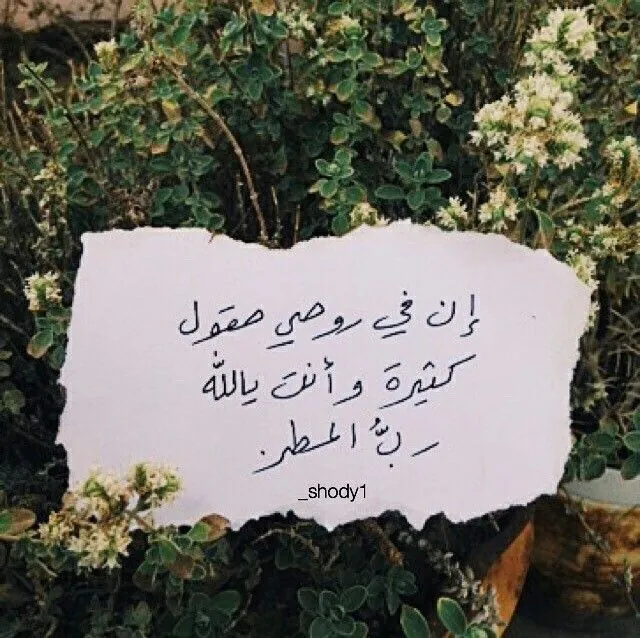 إن في روحي حقول
كثيرة و أنت يالله
ربُّ المطر.
_shody1